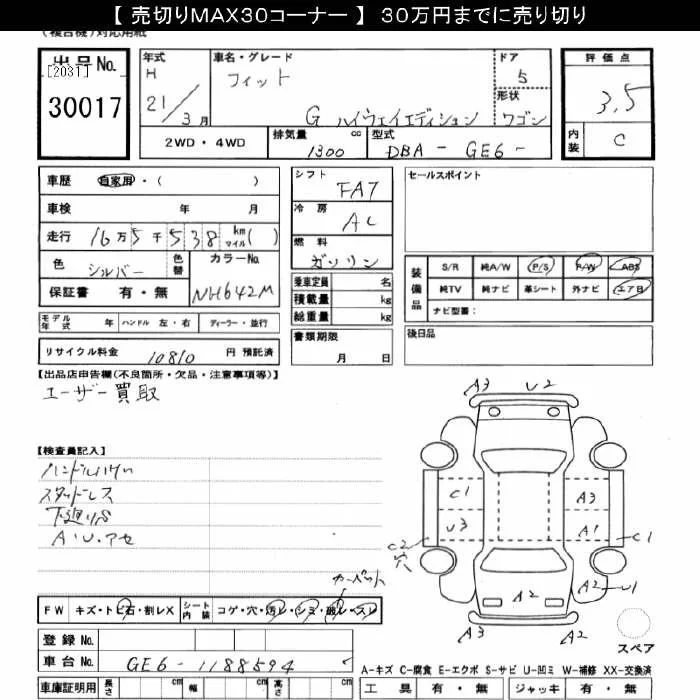 【 売切りMAX30コーナー 】 30万円までに売り切り
(複合機)対応用紙
出品No. [2031] 30017
年式 H 21/3月
車名・グレード フィット G ハイウェイエディション
ドア 5
形状 ワゴン
評価点 3.5
内装 C
2WD・4WD
排気量 1300 cc
型式 DBA - GE6 -
車歴 自家用・( )
車検 年 月
走行 16万5千538 km マイル( )
色 シルバー 色替 カラーNo. NH642M
保証書 有・無
シフト FA7
冷房 AC
燃料 ガソリン
乗車定員 名
積載量 kg
総重量 kg
書類期限 月 日
セールスポイント
装備品 S/R 純A/W P/S P/W ABS
純TV 純ナビ 革シート 外ナビ エアB
ナビ型番:
後日品
モデル年式 年 ハンドル 左・右 ディーラー・並行
リサイクル料金 10810 円 預託済
【出品店申告欄(不良箇所・欠品・注意事項等)】
ユーザー買取
【検査員記入】
スタッドレス
A・U・アセ
カーペット
FW キズ・トビ石・割レX シート内装 コゲ・穴・汚レ・シミ・破レ・スレ
登録No.
車台No. GE6-1188594
車庫証明用 長さ cm 幅 cm 高さ cm
A3 U2
C1 A3
U3 A1
C2 穴 C1
A2 A2 U1
A3 A2
スペア
A-キズ C-腐食 E-エクボ S-サビ U-凹ミ W-補修 XX-交換済
工具 有・無 ジャッキ 有・無